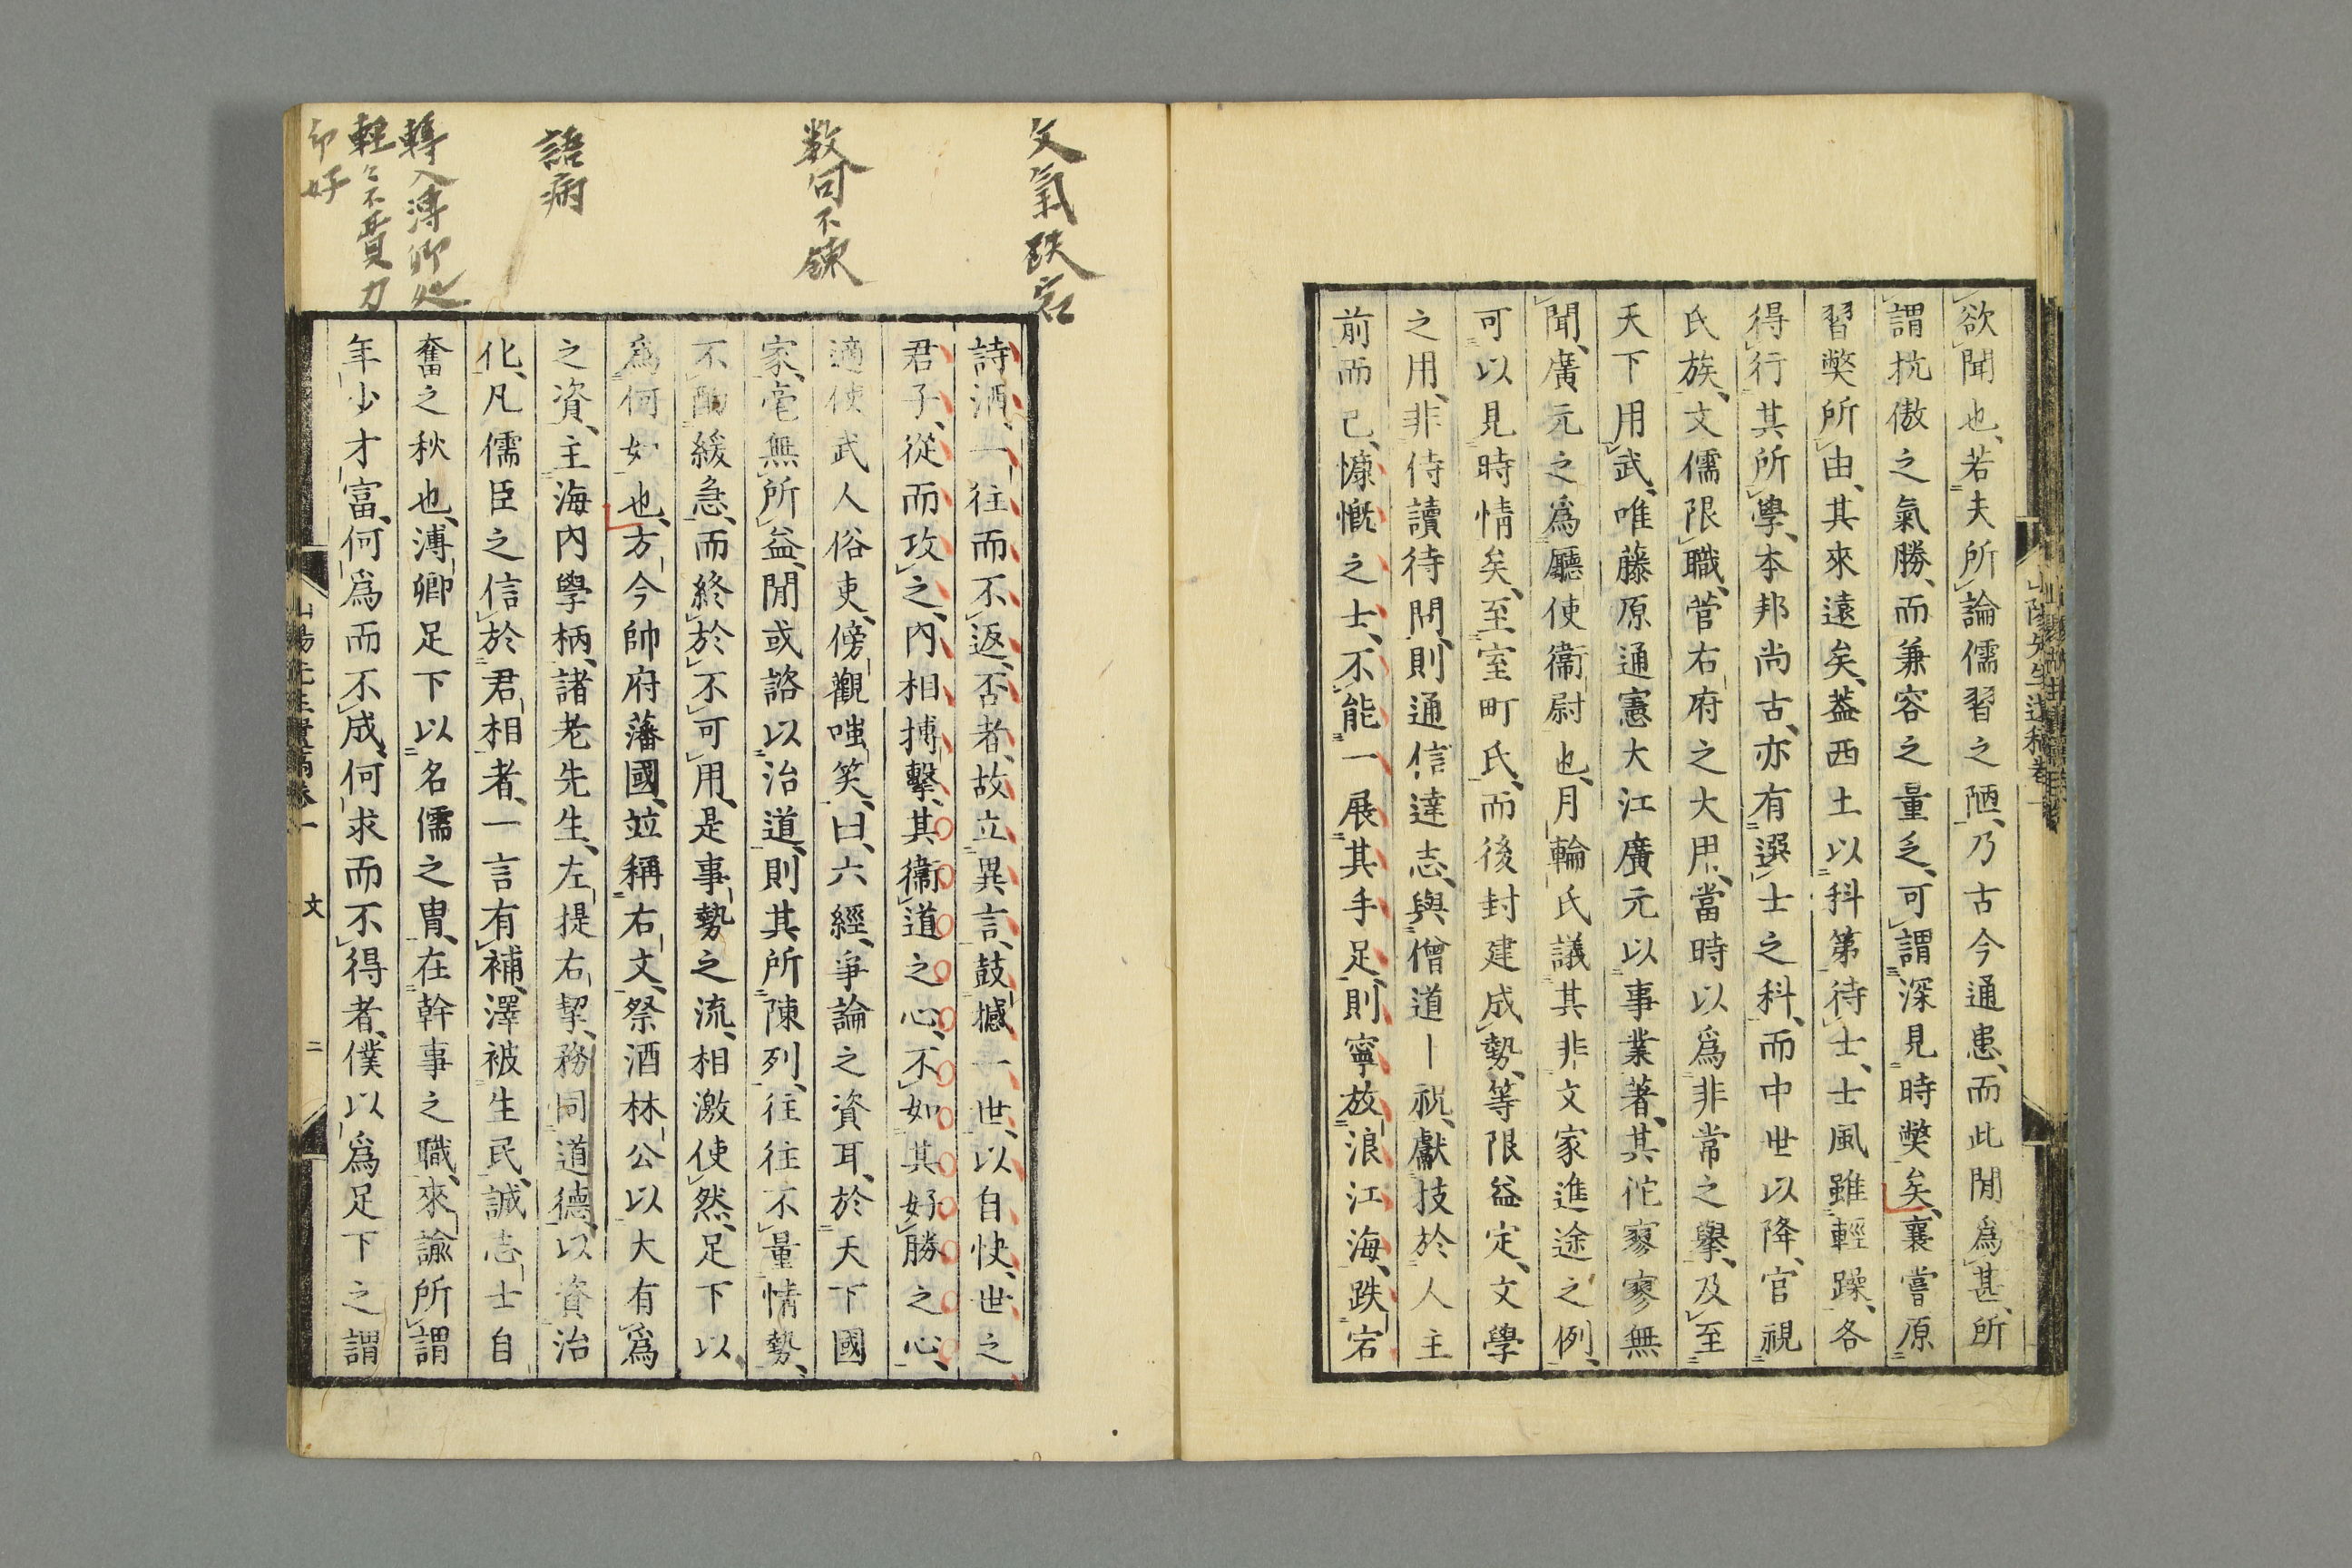 欲聞也、若夫所論儒習之陋、乃古今通患、而此間爲甚、所
謂抗傲之氣勝、而兼容之量乏、可謂深見時獘矣、襄嘗原
習獘所由、其來遠矣、葢西土以科第待士、士風雖輕躁、各
得行其所學、本邦尚古、亦有選士之科、而中世以降、官視
氏族、文儒限職、菅右府之大用、當時以爲非常之擧、及至
天下用武、唯藤原通憲大江廣元以事業著、其佗寥寥無
聞、廣元之爲廳使衞尉也、月輪氏議其非文家進途之例、
可以見時情矣、至室町氏、而後封建成勢、等限益定、文學
之用、非侍讀待問、則通信達志、與僧道ー祝、獻技於人主
前而已、慷慨之士、不能一展其手足、則寧放浪江海、跌宕
山陽先生遺稿卷一
文氣跌宕
数句不錬
語病
轉入溥卿处
輕〻不費力
印好
詩酒、一往而不返、否者、故立異言、鼓撼一世、以自快、世之
君子、從而攻之、內相搏擊、其衞道之心、不如其好勝之心、
適使武人俗吏、傍觀嗤笑、曰、六經、爭論之資耳、於天下國
家、毫無所益、間或諮以治道、則其所陳列、往往不量情勢、
不酌緩急、而終於不可用、是事勢之流、相激使然、足下以
爲何如也、方今帥府藩國、竝稱右文、祭酒林公以大有爲
之資、主海內學柄、諸老先生、左提右挈、務同道德、以資治
化、凡儒臣之信於君相者、一言有補、澤被生民、誠志士自
奮之秋也、溥卿足下以名儒之胄、在幹事之職、來諭所謂
年少才富、何爲而不成、何求而不得者、僕以爲足下之謂
山陽先生遺稿卷一 文 二